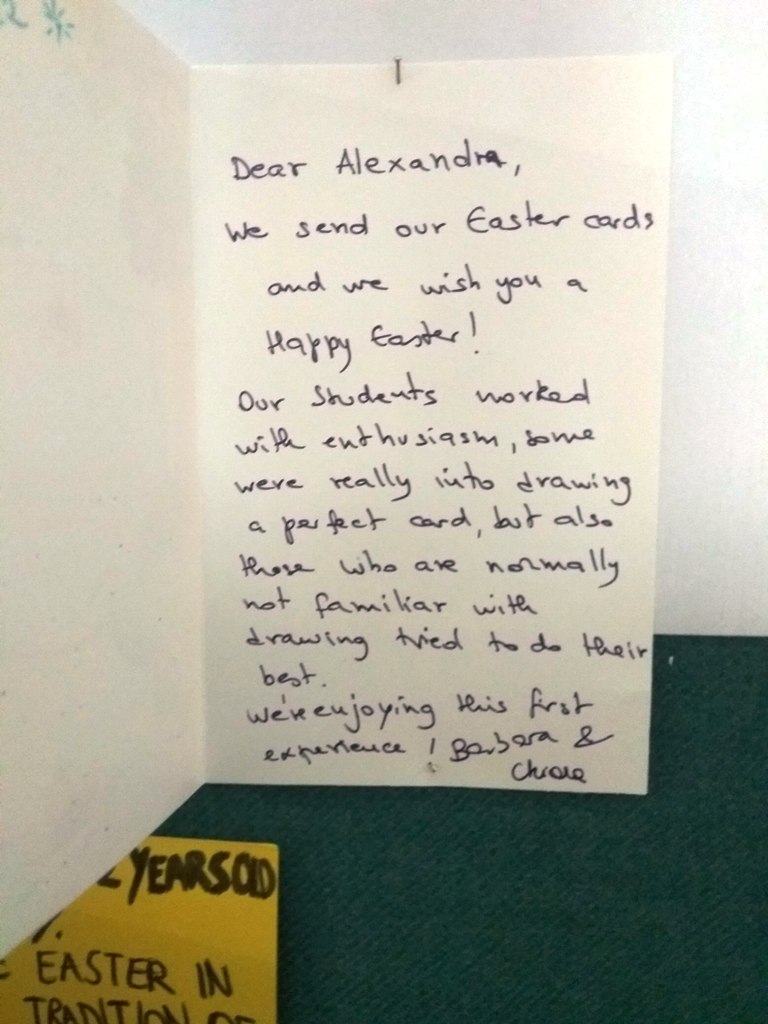 Dear Alexandra,
We send our Easter cards
and we wish you a
Happy Easter!
Our students worked
with enthusiasm, some
were really into drawing
a perfect card, but also
those who are normally
not familiar with
drawing tried to do their
best.
We're enjoying this first
experience! Barbara &
Chiara
YEARS OLD
EASTER IN
TRADITION OF